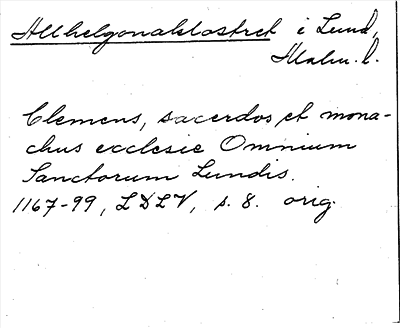 Allhelgonaklostret i Lund,
Malm. l.
Clemens, sacerdos et mona-
chus ecclesie Omnium
Sanctorum Lundis.
1167-99, LDLV, s. 8. orig.